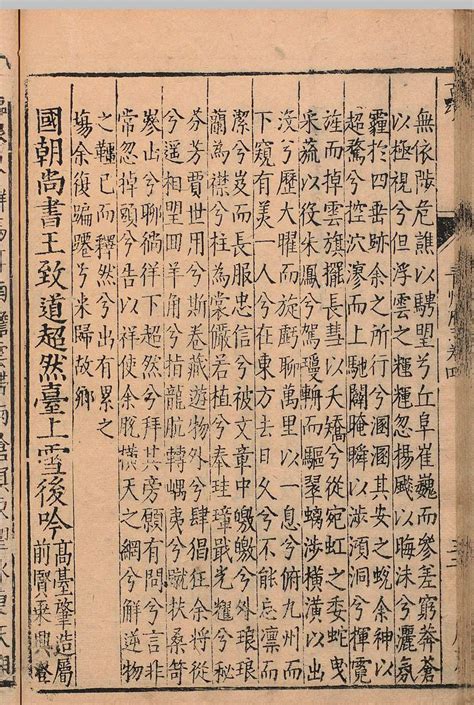 無依陟危譙以騁望兮丘阜崔巍而參差窮莽蒼
以極視兮但浮雲之輝輝忽揚飈以晦沬兮灑氛
霾於四垂跡余之所行兮溷溷其安之蛻余神以
超騖兮控泬寥而上馳闢晻瞬以涉澒洞兮揮霓
旌而掉雲旗擺長彗以夭矯兮從宛虹之委蛇曳
采旒以役朱鳳兮駕瓊輈而驅翠螭涉橫潢以出
沒兮歷大曜而萬里以一息兮俯九州而
下窺有美一人兮在東方去日久兮不能忘凜
潔兮岌而長服忠信兮被文章中皦皦兮外琅琅
蘭為襟兮桂為裳儼若植兮奉珪璋戢光耀兮秘
芬芳賈世用兮斯卷藏遊物外兮肆猖狂余將從
兮遥相望回羊角兮指龍肮轉嵎夷兮蹴扶桑笥
嵾山兮聊徜徉下超然兮拜其旁願有問兮遇非
常忽掉頭兮告以祥使余脫橫天之網兮解言
之韁已而釋然兮出有累之
塲余復蹁躚兮來歸故鄉
國朝尚書王致道超然臺上雪後吟
高臺肇造屬
前賢乘興登